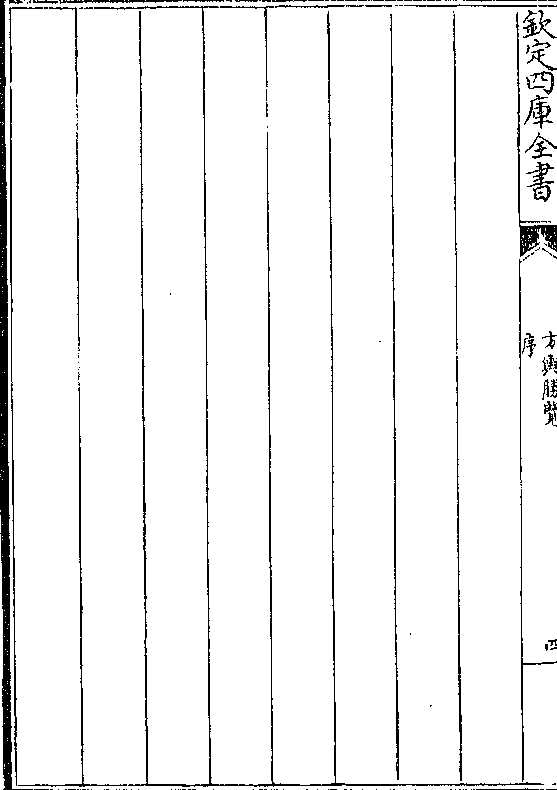 欽定四庫全書
方輿勝覽
序
四